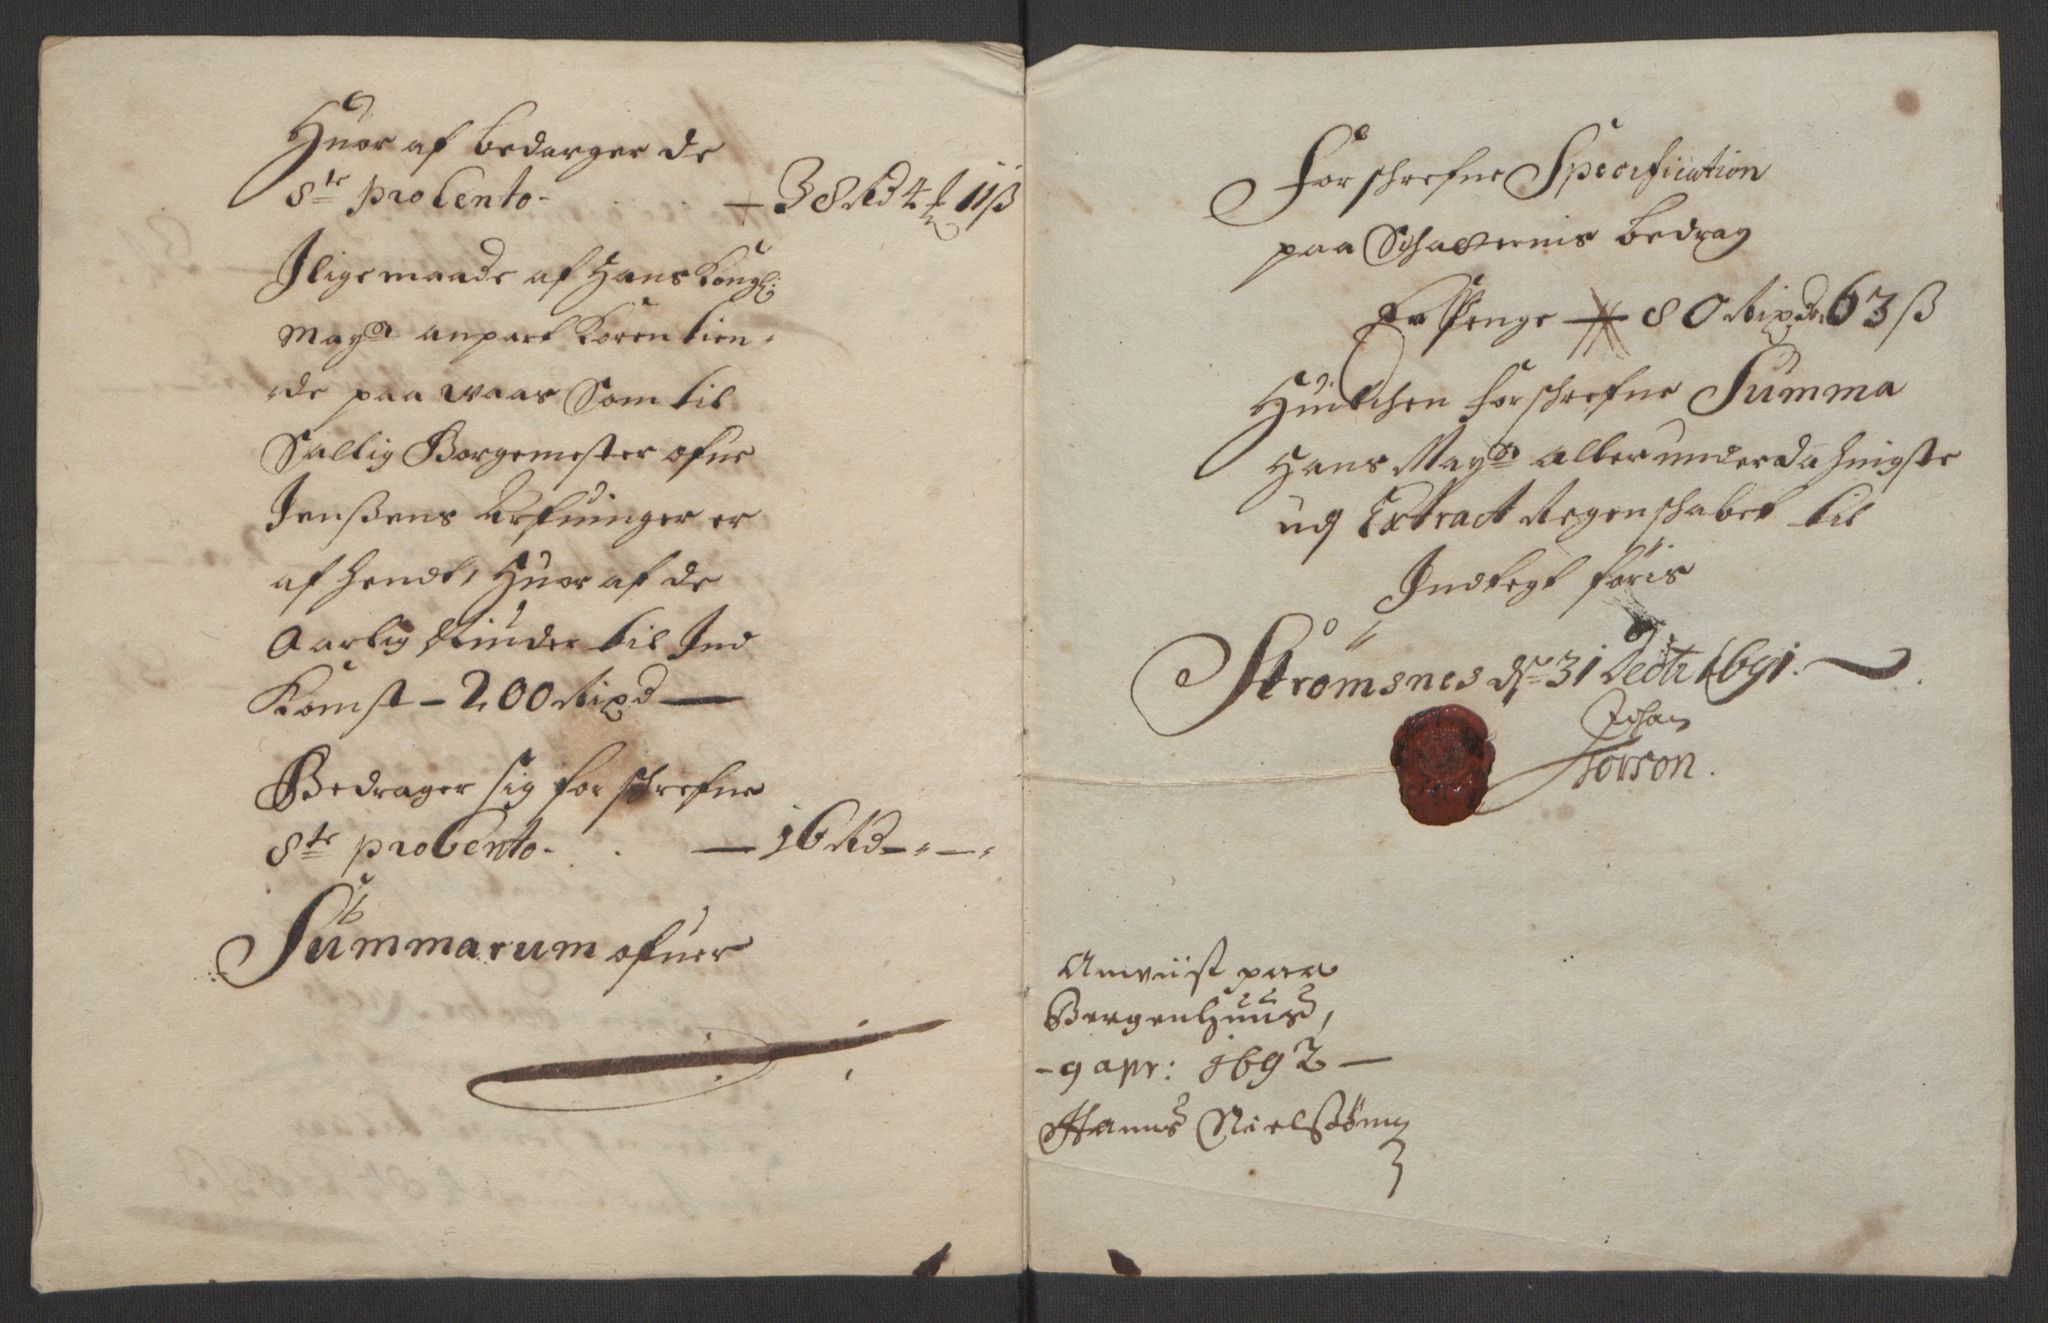 Huor af bedarger de
8te pro Cento - 38 Rd 4 ℔ 11 ß
Jlige maade af Hans Kongl:
Mayts anpart Koren tien-
de paa Waas Som til
Sallig Borgemester Ofue
Jenßens Arfuinger er
af hendt, Huor af de
Aarlig Niuder til Ind
Komst - 200 Rixd -
Bedrager sig forschrefne
8te pro Cento - 16 Rd - " - "
Summarum ofuer
For schrefne Specification
paa Schatternis bedrag
Er Penge - 80 Rixdr 63 ß
Huilchen forschrefne Summa
Hans Mayts allerunderdahnigste
udj Extract Regenschabet til
Indtegt föris
Strömsnes dn 31 Decbr 1691.
Johan
Torson.
Anviist paa
Bergenhuus,
- 9 apr: 1692 -
Hanns Nielssönn